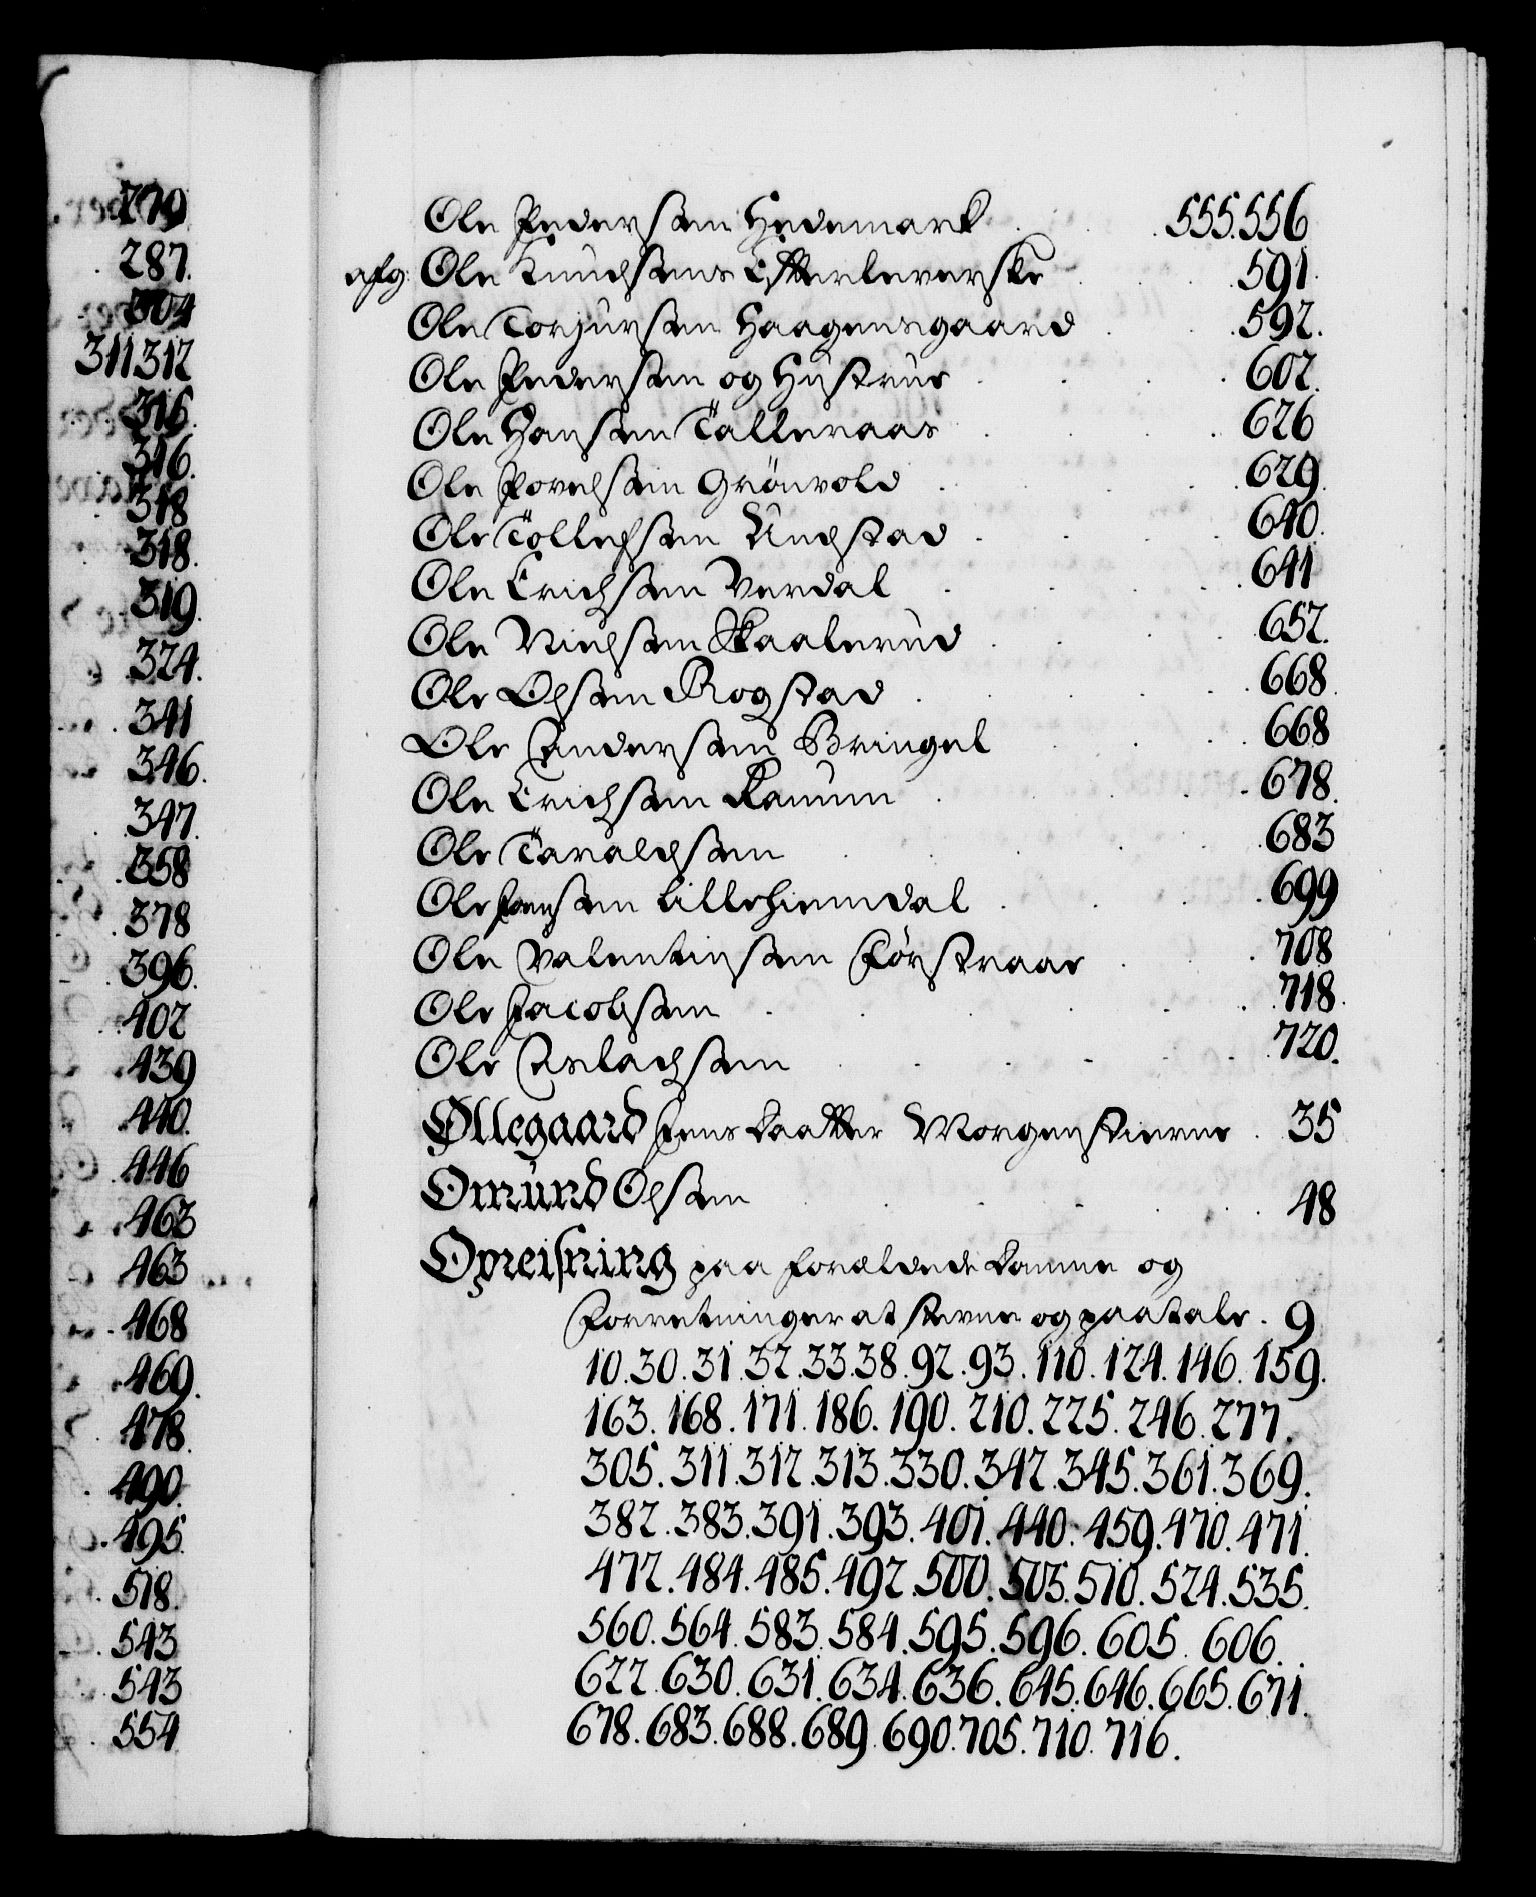 270
287.
304
311 312
316.
316.
318
318.
319.
324.
341
346.
347.
358
378
396.
402
439
440.
446
463
463
468
469.
478.
490.
495.
518.
543
543
554
Ole Pedersen Hedemark . . 555.556
afg: Ole Knudsens Efterleverske . . 591.
Ole Torjursen Haagensgaard . . 592.
Ole Pedersen og Hustrue . . . 602.
Ole Hansen Talleraas . . . 626
Ole Povelsen Grönvold . . . 629.
Ole Tollefsen Undstad . . . 640.
Ole Erichsen Verdal . . . 641
Ole Nielsen Skaalerud . . . 652.
Ole Olsen Rogstad . . . 668.
Ole Andersen Bringel . . . 668
Ole Erichsen Ramum . . . 678.
Ole Taraldsen . . . 683
Ole Jensen Lillehiemdal . . . 699
Ole Valentinsen Förstraar . . 708
Ole Jacobsen . . . 718.
Ole Aslachsen . . . 720.
Øllegaard Jens Daatter Morgenstierne . 35
Omund Olsen . . . 48
Opreisning paa forældede Domme og
Forretninger at stevne og paatale . 9
10.30.31.32.33.38.92.93.110.124.146.159.
163.168.171.186.190.210.225.246.277.
305.311.312.313.330.342.345.361.369.
382.383.391.393.401.440.459.470.471.
472.484.485.492.500.503.510.524.535.
560.564.583.584.595.596.605.606.
622.630.631.634.636.645.646.665.671.
678.683.688.689.690.705.710.716.